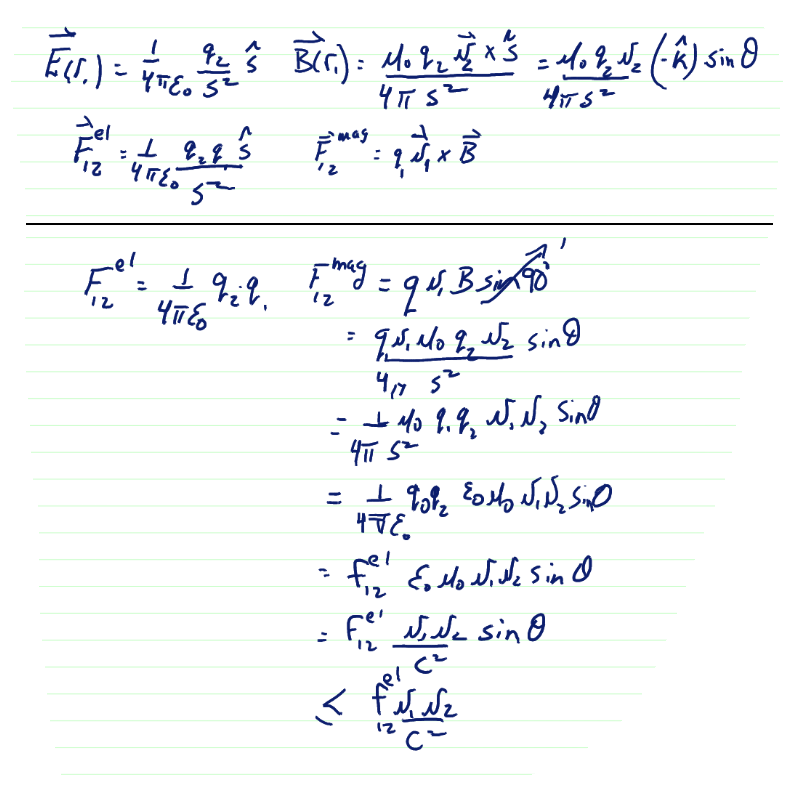 E⃗(r₁) = 1/(4πε₀) q₂/s² ŝ    B⃗(r₁) = μ₀ q₂ v⃗₂ × ŝ / (4π s²) = μ₀ q₂ v₂ / (4π s²) (-k̂) sin θ
F⃗₁₂^el = 1/(4πε₀) q₂ q₁/s² ŝ    F⃗₁₂^mag = q₁ v⃗₁ × B⃗
F₁₂^el = 1/(4πε₀) q₂·q₁    F₁₂^mag = q v₁ B sin 90° 1
= q₁ v₁ μ₀ q₂ v₂ / (4π s²) sin θ
= 1/(4π s²) μ₀ q₁ q₂ v₁ v₂ sin θ
= 1/(4πε₀) q₀ q₂ ε₀ μ₀ v₁ v₂ sin θ
= f₁₂^el ε₀ μ₀ v₁ v₂ sin θ
= F₁₂^el v₁ v₂ / c² sin θ
≤ f₁₂^el v₁ v₂ / c²